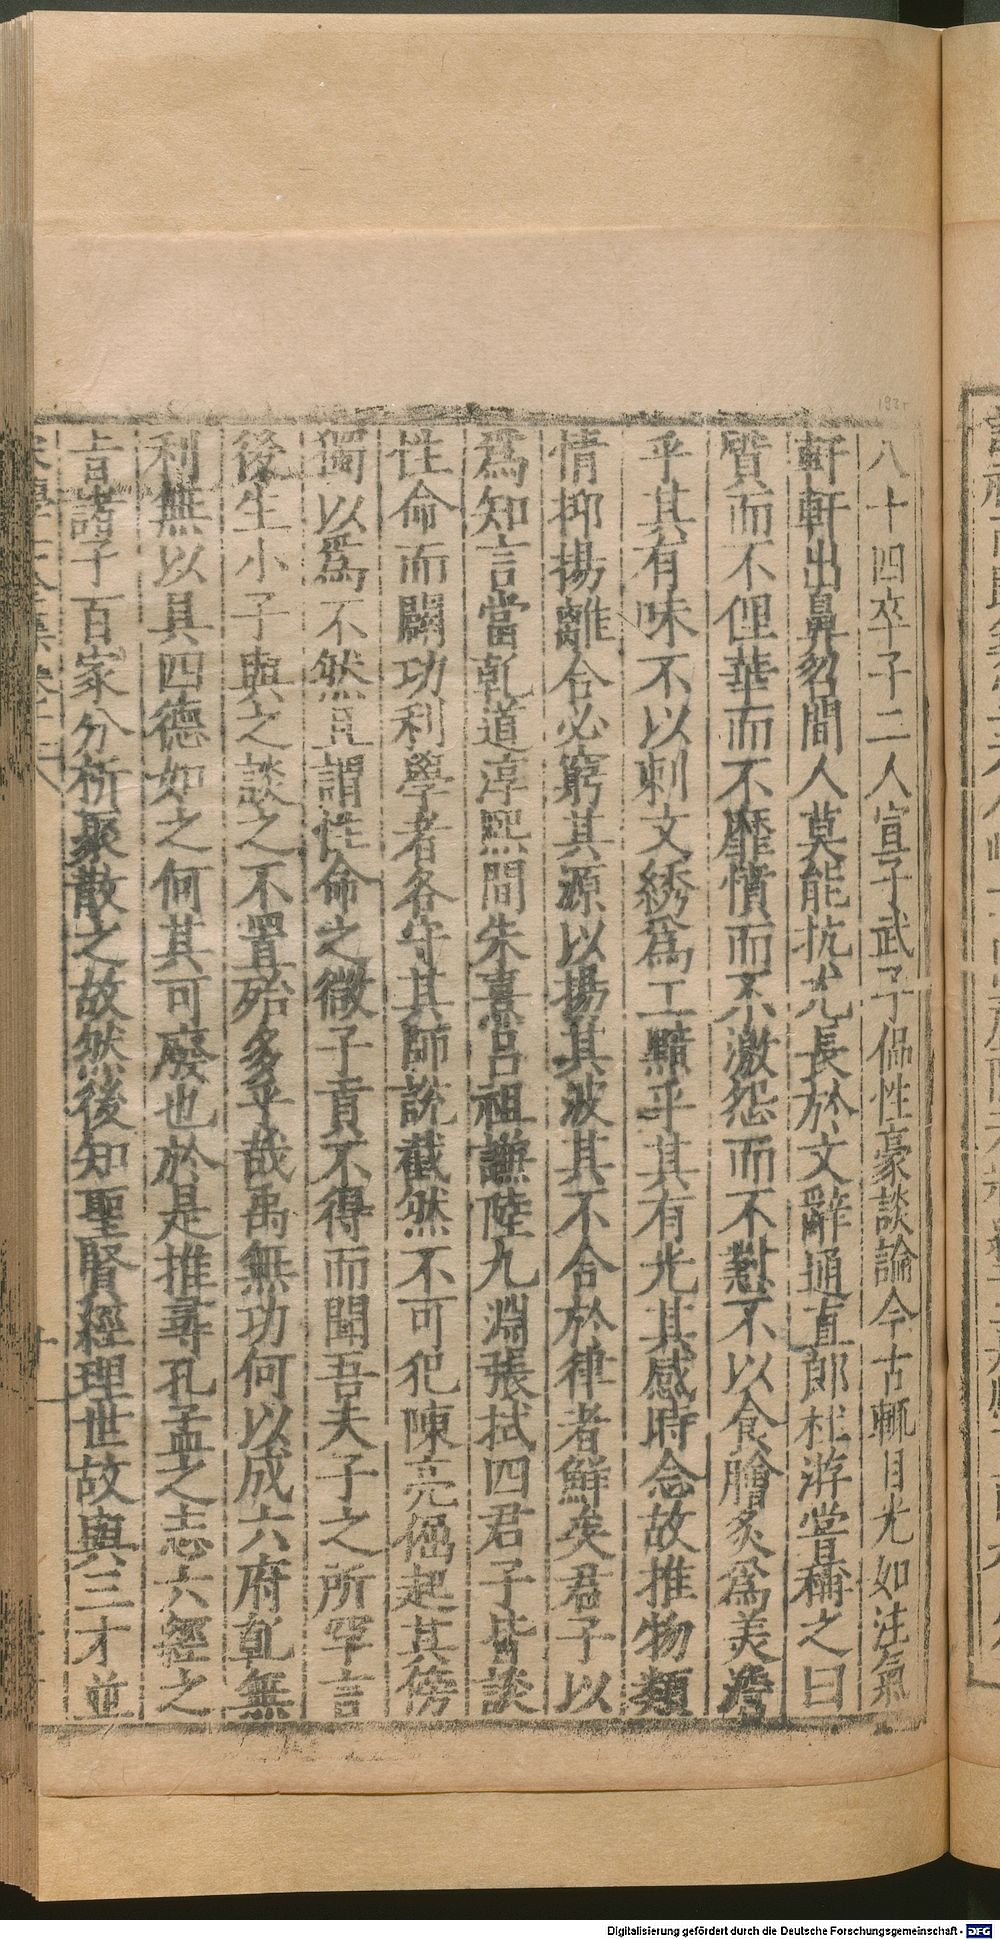 八十四卒子二人宣子武子偘性豪談論今古輒目光如注氣
軒軒出鼻岧間人莫能抗尤長於文辭通直郎杜游嘗稱之曰
質而不俚華而不靡憤而不激怨而不懟不以食膾炙爲美澹
乎其有味不以刺文綉爲工黯乎其有光其感時念故推物類
情抑揚離合必窮其源以揚其波其不合於律者鮮矣君子以
爲知言當乹道淳熙間朱熹呂祖謙陸九淵張拭四君子皆談
性命而闢功利學者各守其師說截然不可犯陳亮倔起其傍
獨以爲不然且謂性命之微子貢不得而聞吾夫子之所罕言
後生小子與之談之不置殆多乎哉禹無功何以成六府乹無
利無以具四德如之何其可廢也於是推尋孔孟之志六經之
㫖諸子百家分析聚散之故然後知聖賢經理世故與三才並
Digitalisierung gefördert durch die Deutsche Forschungsgemeinschaft - DFG